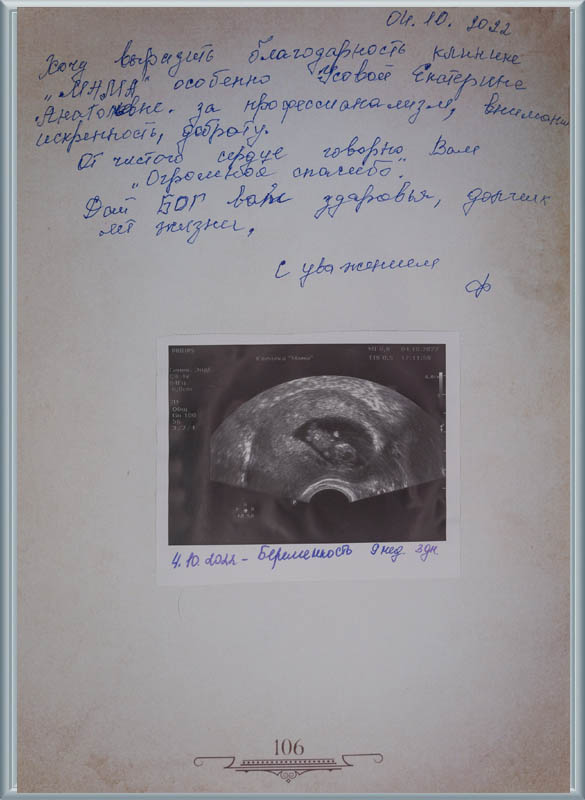 04.10.2022
Хочу выразить благодарность клинике
"МАМА" особенно Усовой Екатерине
Анатольевне. за профессианализм, внимание
искренность, доброту.
От чистого сердце говорию Вам
"Огромное спасибо".
Дай БОГ вам здаровья, долгих
лет жизни,
С уважением
Ф
PHILIPS
Клиника "Мама"
MI 0,8
04.10.2022
TIS 0.5 17:11:59
2D
Общ
3/2/4
4.10.2022 - Беременность 9 нед 3 дн
106